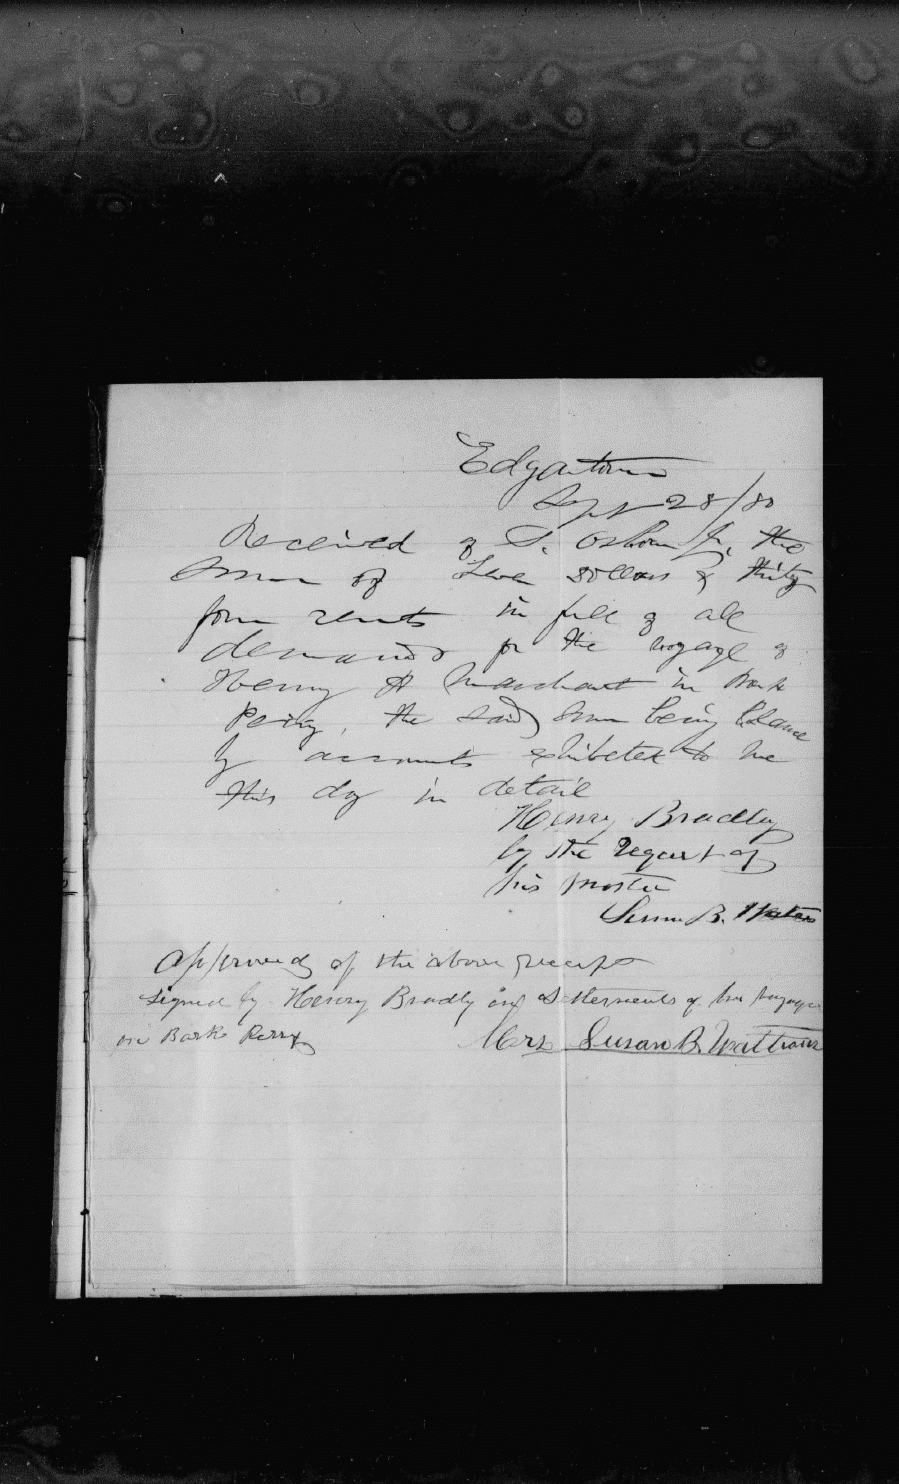 Edgartown
Sept 28/80
Received of S. Osborn Jr. the
Sum of dollars & thirty
four cents in full of all
demands for the voyage of
Henry A Marchant in Bark
Perry, the said sum being balance
by accounts exhibeted to me
this day in detail
Henry Bradley
by the request of
his
Susan B.
Approved of the above receipt
signed by Henry Bradly in Setlements of his voyage
in Bark Perry
Mrs Susan B.